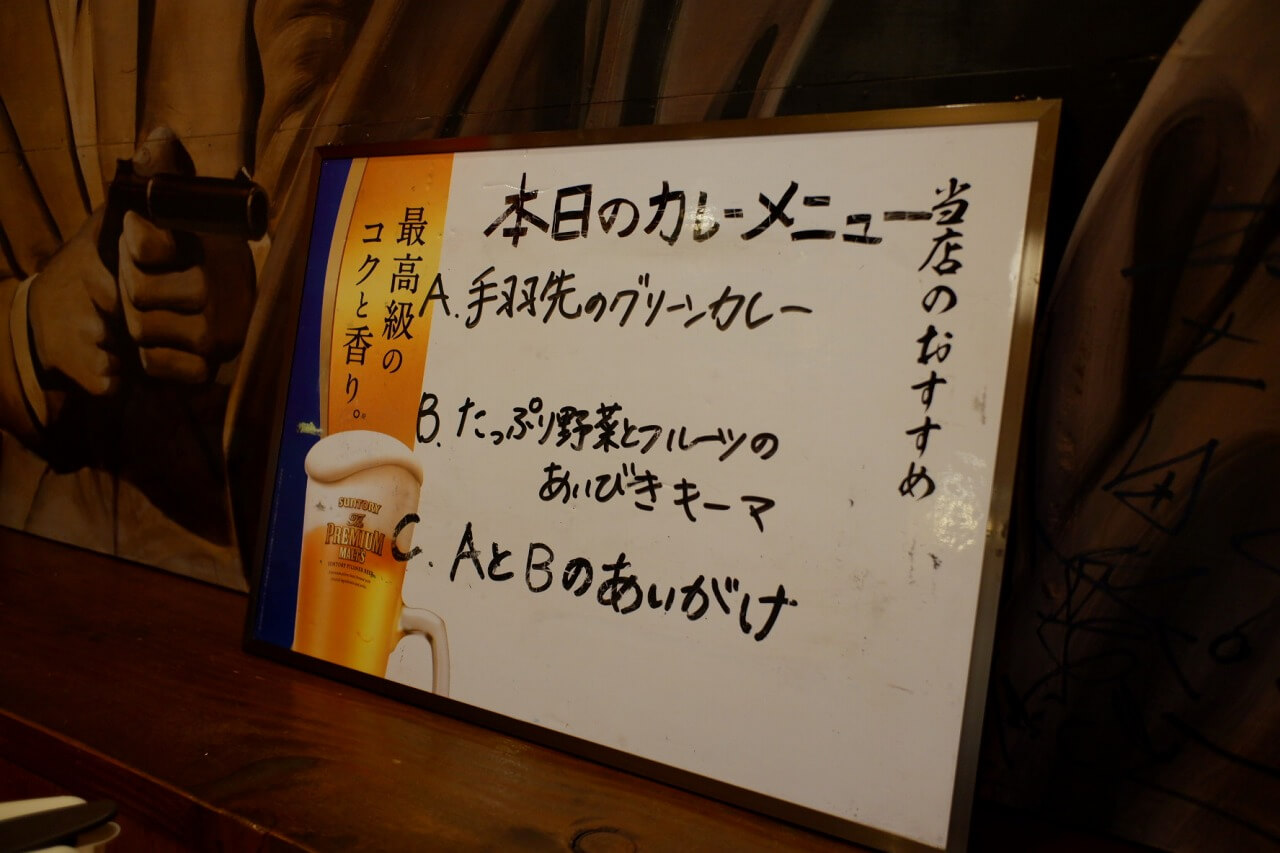 本日のカレーメニュー
A. 手羽先のグリーンカレー
B. たっぷり野菜とフルーツの
あいびきキーマ
C. AとBのあいがけ
当店のおすすめ
最高級の
コクと香り。
SUNTORY
The
PREMIUM
MALT'S